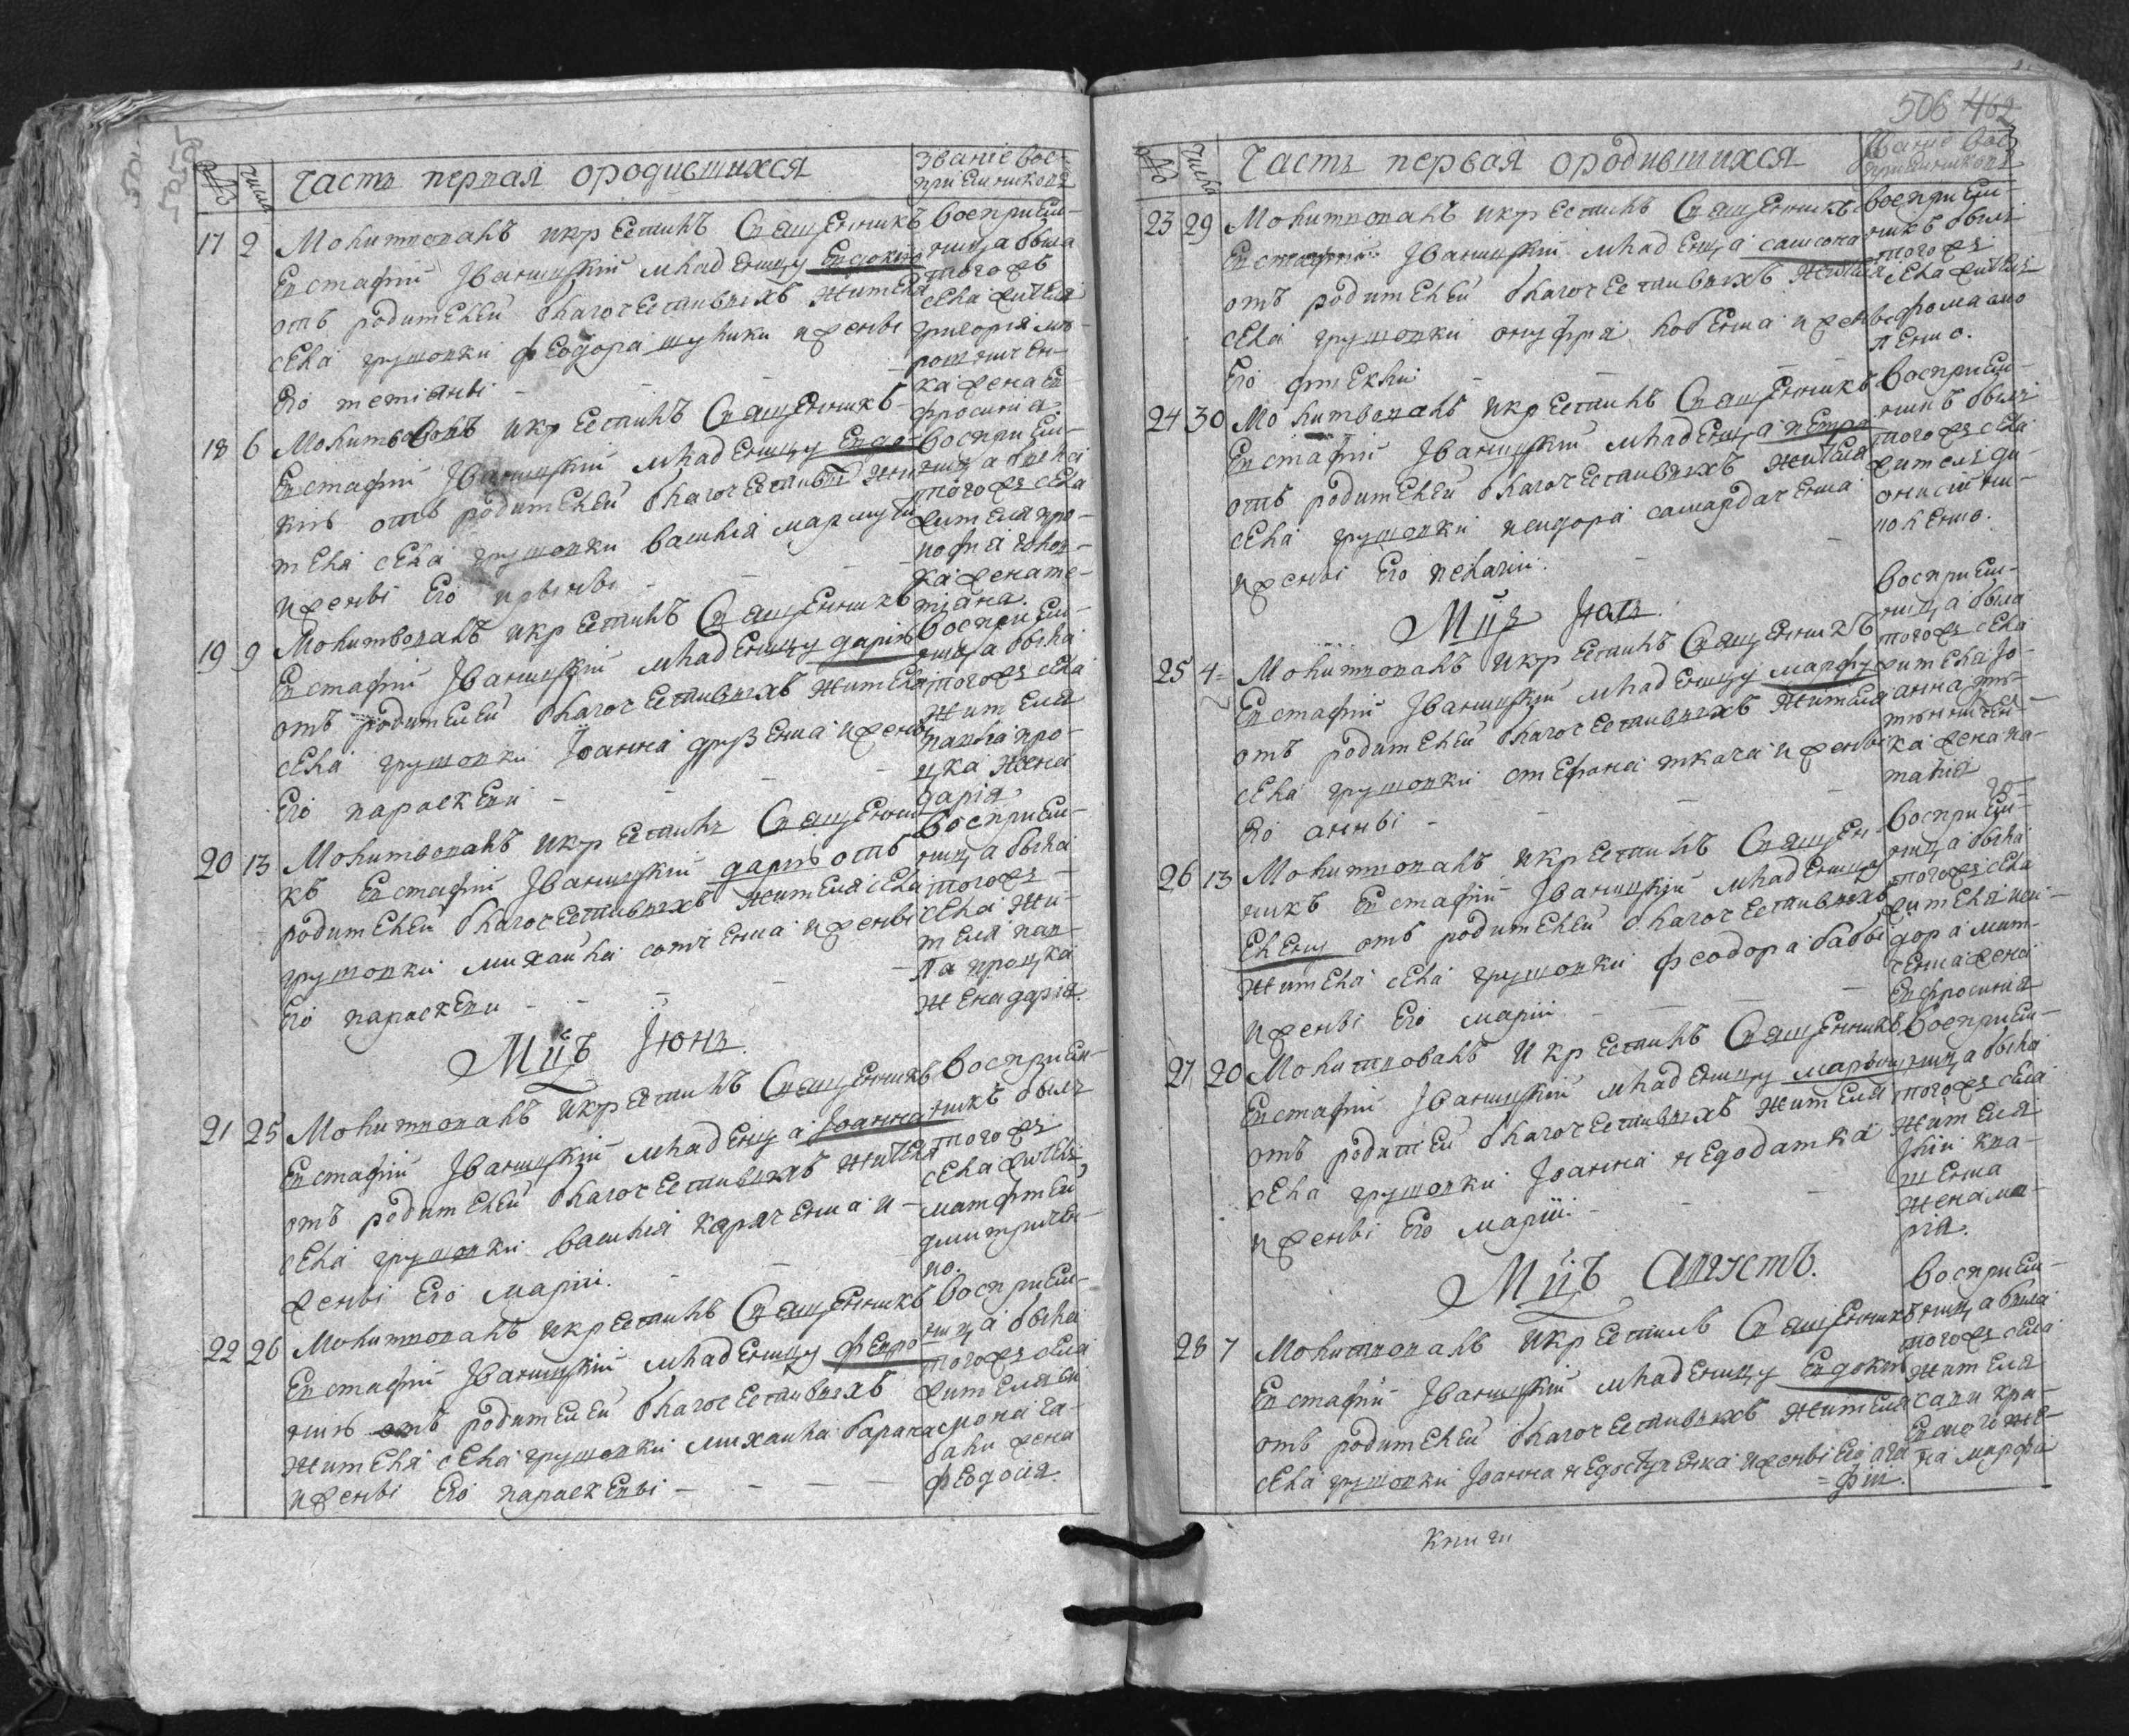 Часть первая о родившихся
Званіе вос-
пріемниковъ
17 2 Молитвовалъ и крестилъ Священникъ
Евстафий Іваницкій младенцу Евдокію
отъ родителей благочестивыхъ жителя
села грушовки феодора шулики и жены
Его тетіаны
воспріем-
ница была
того жъ
села жителя
григорія мо-
ротниченка
ка жена Ев-
фросинія
18 6 Молитвовалъ и крестилъ Священникъ
Евстафий Іваницкій младенцу Евдо-
кію отъ родителей благочестивы жи-
теля села грушовки василія
и жены Его ирыны
воспріем-
ница была
того жъ села
жителя про-
кофія
ка жена те-
тіана
19 9 Молитвовалъ и крестилъ Священникъ
Евстафий Іваницкій младенцу дарію
отъ родителей благочестивыхъ жителя
села грушовки Іоанна друзенка и жены
Его параскеви
воспріем-
ница была
того жъ села
жителя
павла про-
цка жена
дарія
20 13 Молитвовалъ и крестилъ Священни-
къ Евстафий Іваницкій дарію отъ
родителей благочестивыхъ жителя села
грушовки михаила сотченка и жены
Его параскеви
воспріем-
ница была
того жъ
села жи-
теля пав-
ла процка
жена дарія.
Мцъ Іюнь
21 25 Молитвовалъ и крестилъ Священникъ
Евстафий Іваницкій младенца Іоанна
отъ родителей благочестивыхъ жителя
села грушовки василія карпченка и
жены Его маріи.
воспріем-
никъ былъ
того жъ
села житель
матфтей
дмитричен-
ко.
22 26 Молитвовалъ и крестилъ Священникъ
Евстафий Іваницкій младенцу февро-
нию отъ родителей благочестивыхъ
жителя села грушовки михаила барана
и жены Его параскевы
воспріем-
ница была
того жъ села
жителя си-
мона га-
бали жена
феодосія.
506 462
Часть первая о родившихся
Званіе вос-
пріемниковъ
23 29 Молитвовалъ и крестилъ Священникъ
Евстафий Іваницкій младенца самсона
отъ родителей благочестивыхъ жителя
села грушовки онуфрія кобенка и жены
Его феклы
воспріем-
никъ былъ
того жъ
села житель
фома
24 30 Молитвовалъ и крестилъ Священникъ
Евстафий Іваницкій младенца петра
отъ родителей благочестивыхъ жителя
села грушовки исидора самардаченка
и жены Его пелагіи.
воспріем-
никъ былъ
того жъ села
житель ди-
онисій ни-
коленко.
Мцъ Іюль.
25 4 Молитвовалъ и крестилъ Священникъ
Евстафий Іваницкій младенцу марфу
отъ родителей благочестивыхъ жителя
села грушовки стефана ткача и жены
Его анны
воспріем-
ница была
того жъ села
жителя Іо-
анна
ка жена на-
талія
26 13 Молитвовалъ и крестилъ Священ-
никъ Евстафий Іваницкій младенцу
Елену отъ родителей благочестивыхъ
жителя села грушовки феодора бабы
и жены Его маріи
воспріем-
ница была
того жъ села
жителя иси-
дора мит-
ченка жена
Евфросинія
27 20 Молитвовалъ и крестилъ Священникъ
Евстафий Іваницкій младенцу
отъ родителей благочестивыхъ жителя
села грушовки Іоанна недодатка
и жены Его маріи.
воспріем-
ница была
того жъ села
жителя
Іліи ква-
шенка
жена ма-
рія.
Мцъ Августъ.
28 7 Молитвовалъ и крестилъ Священникъ
Евстафий Іваницкій младенцу Евдокію
отъ родителей благочестивыхъ жителя
села грушовки Іоанна недоступенка и жены Его ага
фіи.
воспріем-
ница была
того жъ села
жителя
савы кра-
же-
на марфа
книги